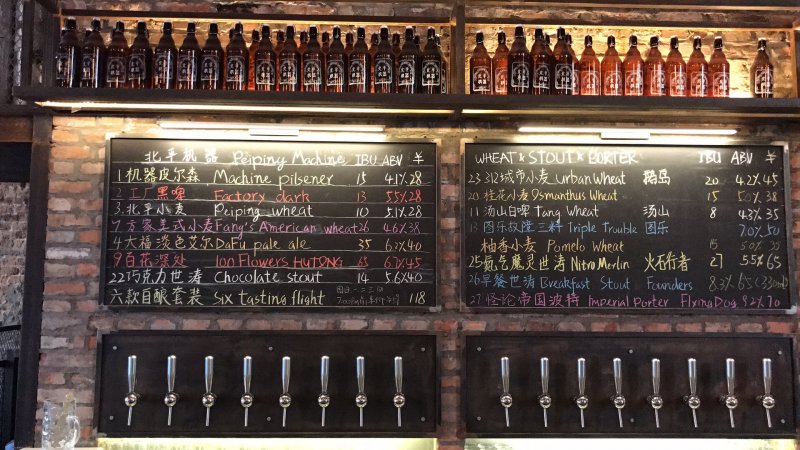 北平机器 Peiping Machine IBU ABV ¥
1 机器皮尔森 Machine pilsener 15 4.1% 28
2 工厂黑啤 Factory dark 13 5.5% 28
3 北平小麦 Peiping wheat 10 5.1% 28
7 方家美式小麦 Fang's American wheat 26 4.6%
4 大福淡色艾尔 DaFu pale ale 35 6.3% 40
9 百花深处 100 Flowers HUTONG 65 6.7% 45
22 巧克力世涛 Chocolate stout 14 5.6% 40
六款自酿套装 Six tasting flight 118
WHEAT & STOUT & PORTER IBU ABV ¥
23 312城市小麦 Urban Wheat 鹅岛 20 4.2% 45
20 桂花小麦 Osmanthus Wheat 15 5.0% 38
11 汤山白啤 Tang Wheat 汤山 8 4.3% 35
13 图乐故障三料 Triple Trouble 图乐 7.0% 50
柚香小麦 Pomelo Wheat 15 5.0% 35
25 氮气魔灵世涛 Nitro Merlin 火石行者 27 5.5% 65
26 早餐世涛 Breakfast Stout Founders 8.3% 65 (330ml)
27 怪论帝国波特 Imperial Porter Flying Dog 9.2% 70